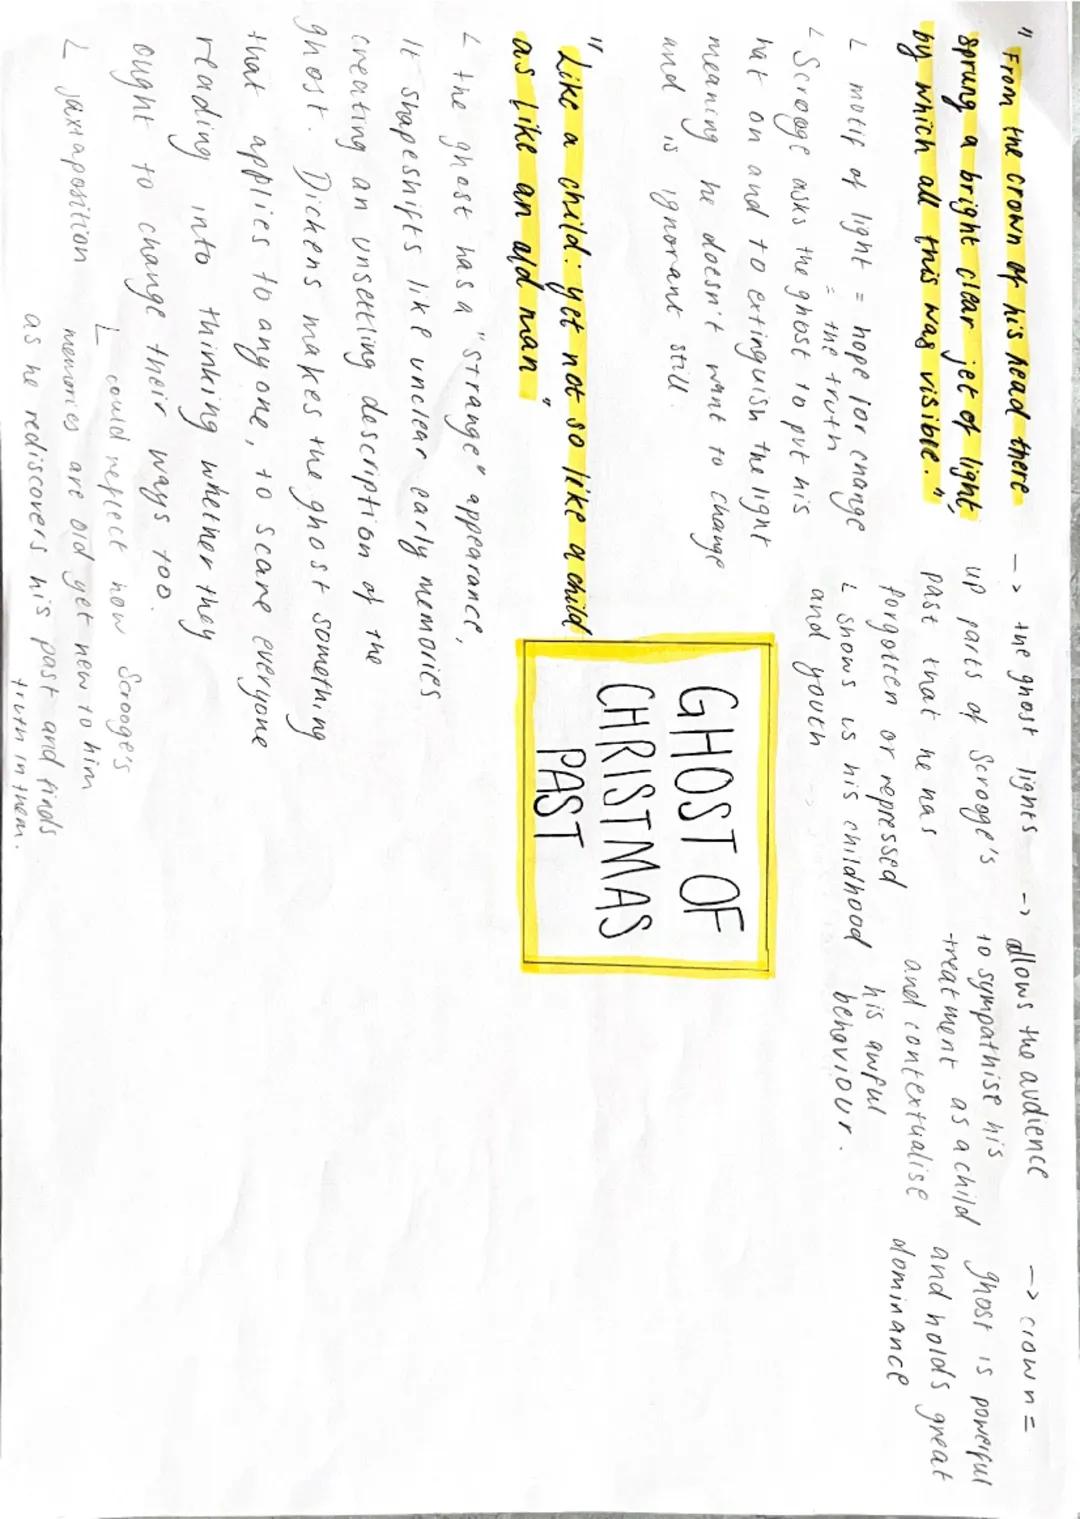 " From the crown of his head there
sprung a bright clear jet of light,
by which all this was visible. "
L motif of light = hope for change
= the truth
L Scrooge asks the ghost to put his
hat on and to extinguish the light
meaning he doesn't want to change
and is ignorant still.
-> the ghost lights
up parts of Scrooge's
past that he has
forgotten or repressed
L shows us his childhood
and youth
-> allows the audience
to sympathise his
treatment as a child
and contextualise
his awful
behaviour.
-> crown =
ghost is powerful
and holds great
dominance
GHOST OF
CHRISTMAS
PAST
" Like a child: yet not so like a child
as like an old man "
L the ghost has a "strange" appearance,
It shapeshifts like unclear early memories
creating an unsettling description of the
ghost. Dickens makes the ghost something
that applies to anyone, to scare everyone
reading into thinking whether they
ought to change their ways too.
L juxtaposition
L could reflect how Scrooge's
memories are old yet new to him
as he rediscovers his past and finds
truth in them.